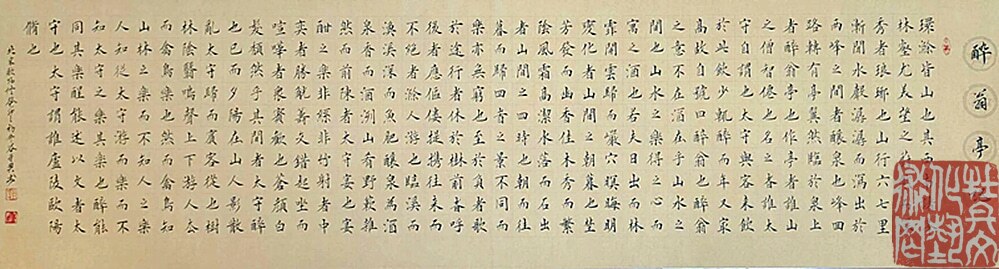 醉翁亭記
環滁皆山也其西
林壑尤美望之蔚
秀者琅琊也山行六七里
漸聞水聲潺潺而瀉出於
兩峰之間者釀泉也峰回
路轉有亭翼然臨於泉上
者醉翁亭也作亭者誰山
之僧智僊也名之者誰太
守自謂也太守與客來飲
於此飲少輒醉而年又最
高故自號曰醉翁也醉翁
之意不在酒在乎山水之
間也山水之樂得之心而
寓之酒也若夫日出而林
霏開雲歸而巖穴暝晦明
變化者山間之朝暮也野
芳發而幽香佳木秀而繁
陰風霜高潔水落而石出
者山間之四時也朝而往
暮而歸四時之景不同而
樂亦無窮也至於負者歌
於途行者休於樹前者呼
後者應傴僂提攜往來而
不絕者滁人游也臨溪而
漁溪深而魚肥釀泉為酒
泉香而酒洌山肴野蔌雜
然而前陳者太守宴也宴
酣之樂非絲非竹射者中
奕者勝觥籌交錯起坐而
喧嘩者衆賓歡也蒼顏白
髮頹然乎其間者太守醉
也已而夕陽在山人影散
亂太守歸而賓客從也樹
林陰翳鳴聲上下游人去
而禽鳥樂也然而禽鳥知
山林之樂而不知人之樂
人知從太守游而樂而不
知太守之樂其樂也醉能
同其樂醒能述以文者太
守也太守謂誰廬陵歐陽
脩也